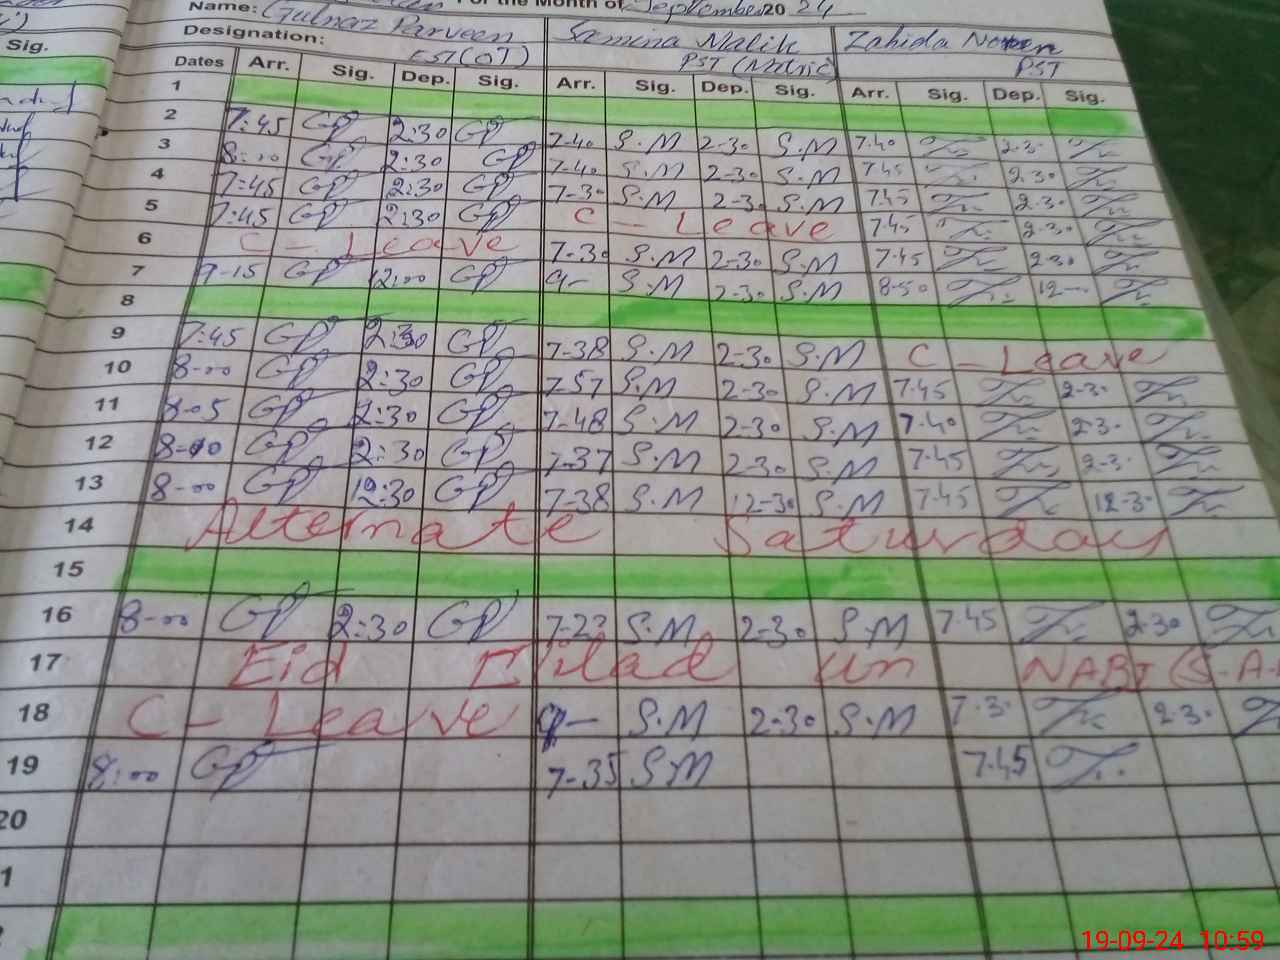 For the Month of September 2024
Name: Gulnaz Parveen Samina Malik Zahida
Designation: EST(OT) PST (Matric) PST
Sig.
Dates Arr. Sig. Dep. Sig. Arr. Sig. Dep. Sig. Arr. Sig. Dep. Sig.
1
2 7:45 GP 2:30 GP 7-40 S.M 2-30 S.M 7.40 2.3.
3 8:00 GP 2:30 GP 7-40 S.M 2-30 S.M 7.45 2.30
4 7:45 GP 2:30 GP 7-30 S.M 2-30 S.M 7.45 2.30
5 7:45 GP 2:30 GP C - Leave 7.45 2.30
6 C - Leave 7-30 S.M 2-30 S.M 7.45 2.30
7 7-15 GP 12:00 GP 9- S.M 2-30 S.M 8-50 12-00
8
9 7:45 GP 2:30 GP 7-38 S.M 2-30 S.M C - Leave
10 8-00 GP 2:30 GP 7-57 S.M 2-30 S.M 7.45 2.3.
11 8-05 GP 2:30 GP 7-48 S.M 2-30 S.M 7.40 2.3.
12 8-00 GP 2:30 GP 7-37 S.M 2-30 S.M 7.45 2-3.
13 8-00 GP 12:30 GP 7-38 S.M 12-30 S.M 7.45 12-3.
14 Alternate Saturday
15
16 8-00 GP 2:30 GP S.M 2-30 S.M 7.45 2.30
17 Eid Milad un NABI (S.A
18 C - Leave 9- S.M 2-30 S.M 7.3. 2.3.
19 8:00 GP 7-35 S.M 7.45
20
1
19-09-24 10:59